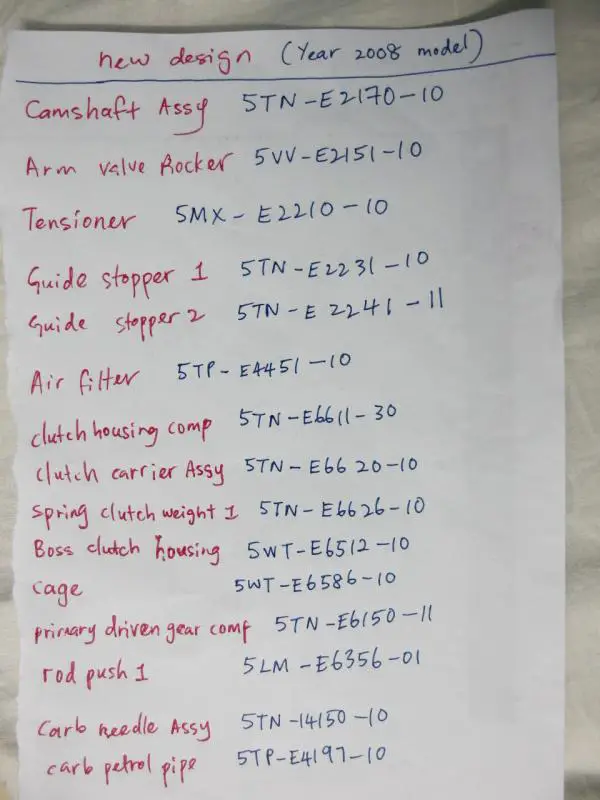 new design (Year 2008 model)
Camshaft Assy 5TN-E2170-10
Arm valve Rocker 5VV-E2151-10
Tensioner 5MX-E2210-10
Guide stopper 1 5TN-E2231-10
Guide stopper 2 5TN-E2241-11
Air filter 5TP-E4451-10
clutch housing comp 5TN-E6611-30
clutch carrier Assy 5TN-E6620-10
spring clutch weight 1 5TN-E6626-10
Boss clutch housing 5WT-E6512-10
cage 5WT-E6586-10
primary driven gear comp 5TN-E6150-11
rod push 1 5LM-E6356-01
Carb needle Assy 5TN-14150-10
carb petrol pipe 5TP-E4197-10